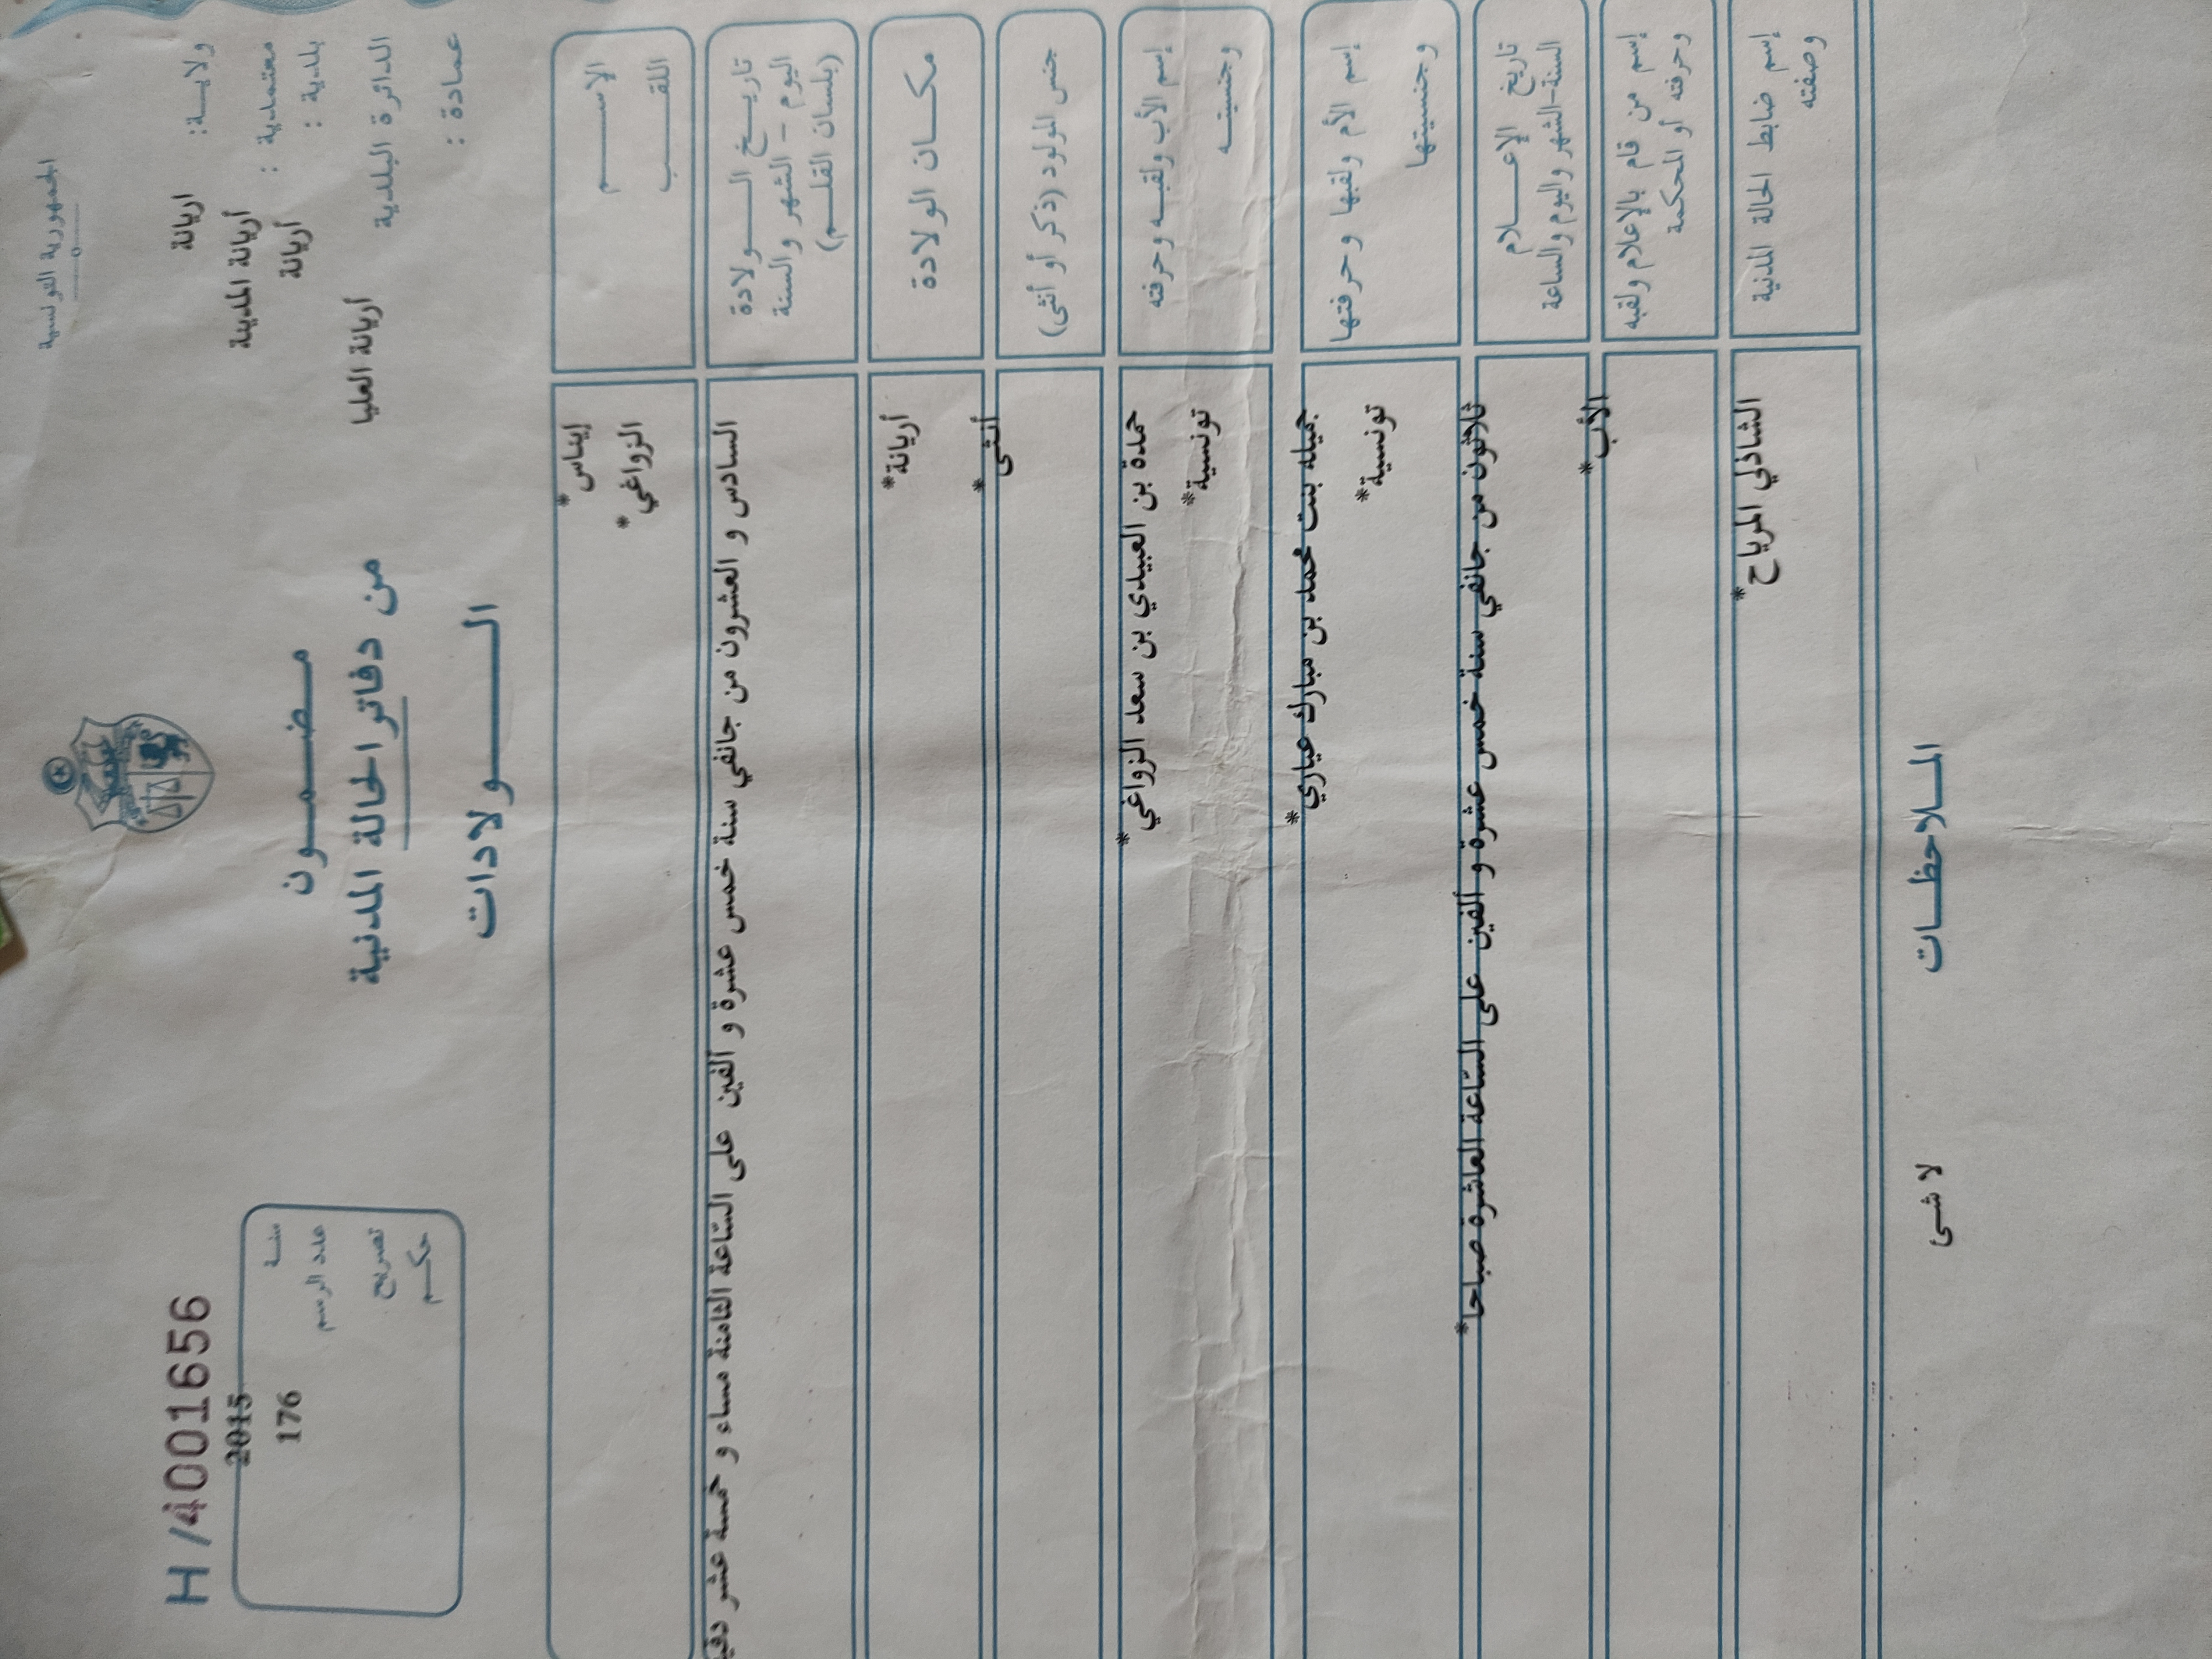 الجمهورية التونسية
ولايــة: اريانة
معتمدية : أريانة المدينة
بلدية : أريانة
الدائرة البلدية أريانة العليا
عمادة :
H/4001656
سنة 2015
عدد الرسم 176
تصريح
حكم
مضمون
من دفاتر الحالة المدنية
الولادات
الإسم إيناس*
اللقب الزواغي*
تاريخ الولادة
اليوم - الشهر والسنة
(بلسان القلم)
السادس و العشرون من جانفي سنة خمس عشرة و ألفين على السّاعة الثامنة مساء و خمسة عشر
مكان الولادة أريانة*
جنس المولود (ذكر أو أنثى) أنثى*
إسم الأب ولقبه وحرفته
حمدة بن العبيدي بن سعد الزواغي*
وجنسيته تونسية*
إسم الأم ولقبها وحرفتها
جميله بنت محمد بن مبارك عياري*
وجنسيتها تونسية*
تاريخ الإعلام
السنة-الشهر واليوم والساعة
ثلاثون من جانفي سنة خمس عشرة و ألفين على السّاعة العاشرة صباحا*
إسم من قام بالإعلام ولقبه
وحرفته أو المحكمة
الأب*
إسم ضابط الحالة المدنية
وصفته
الشاذلي المرياح*
الملاحظات
لا شئ